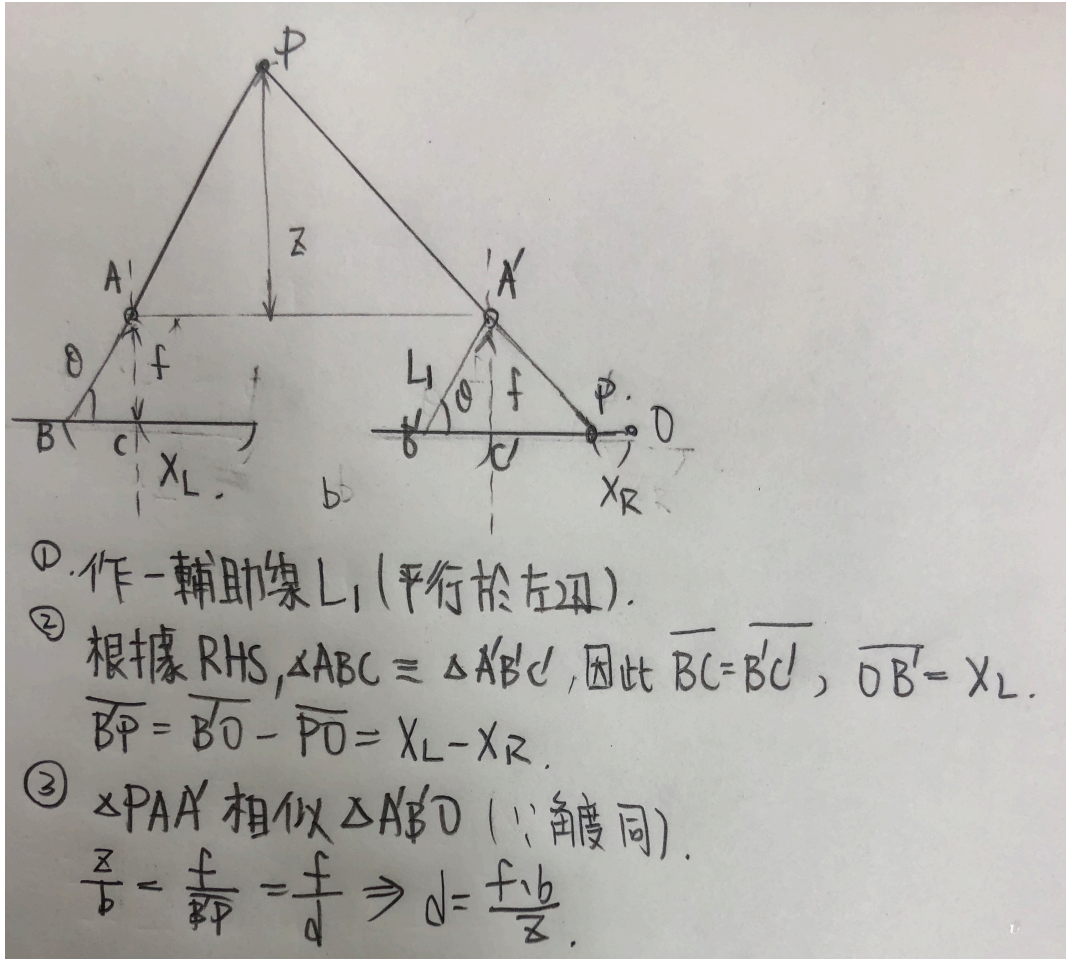 P
Z
A
A'
θ
f
L₁
θ
f
P.
O
B
C
B'
C'
X_L.
b
X_R
①.作一輔助線L₁(平行於左邊).
② 根據RHS,△ABC≡△A'B'C',因此 \overline{BC}=\overline{B'C'}, \overline{OB'}=X_L.
\overline{B'P}=\overline{B'O}-\overline{PO}=X_L-X_R.
③ △PAA'相似△A'B'O(∵角度同).
\frac{Z}{b}=\frac{f}{\overline{B'P}}=\frac{f}{d}⇒d=\frac{f·b}{Z}.